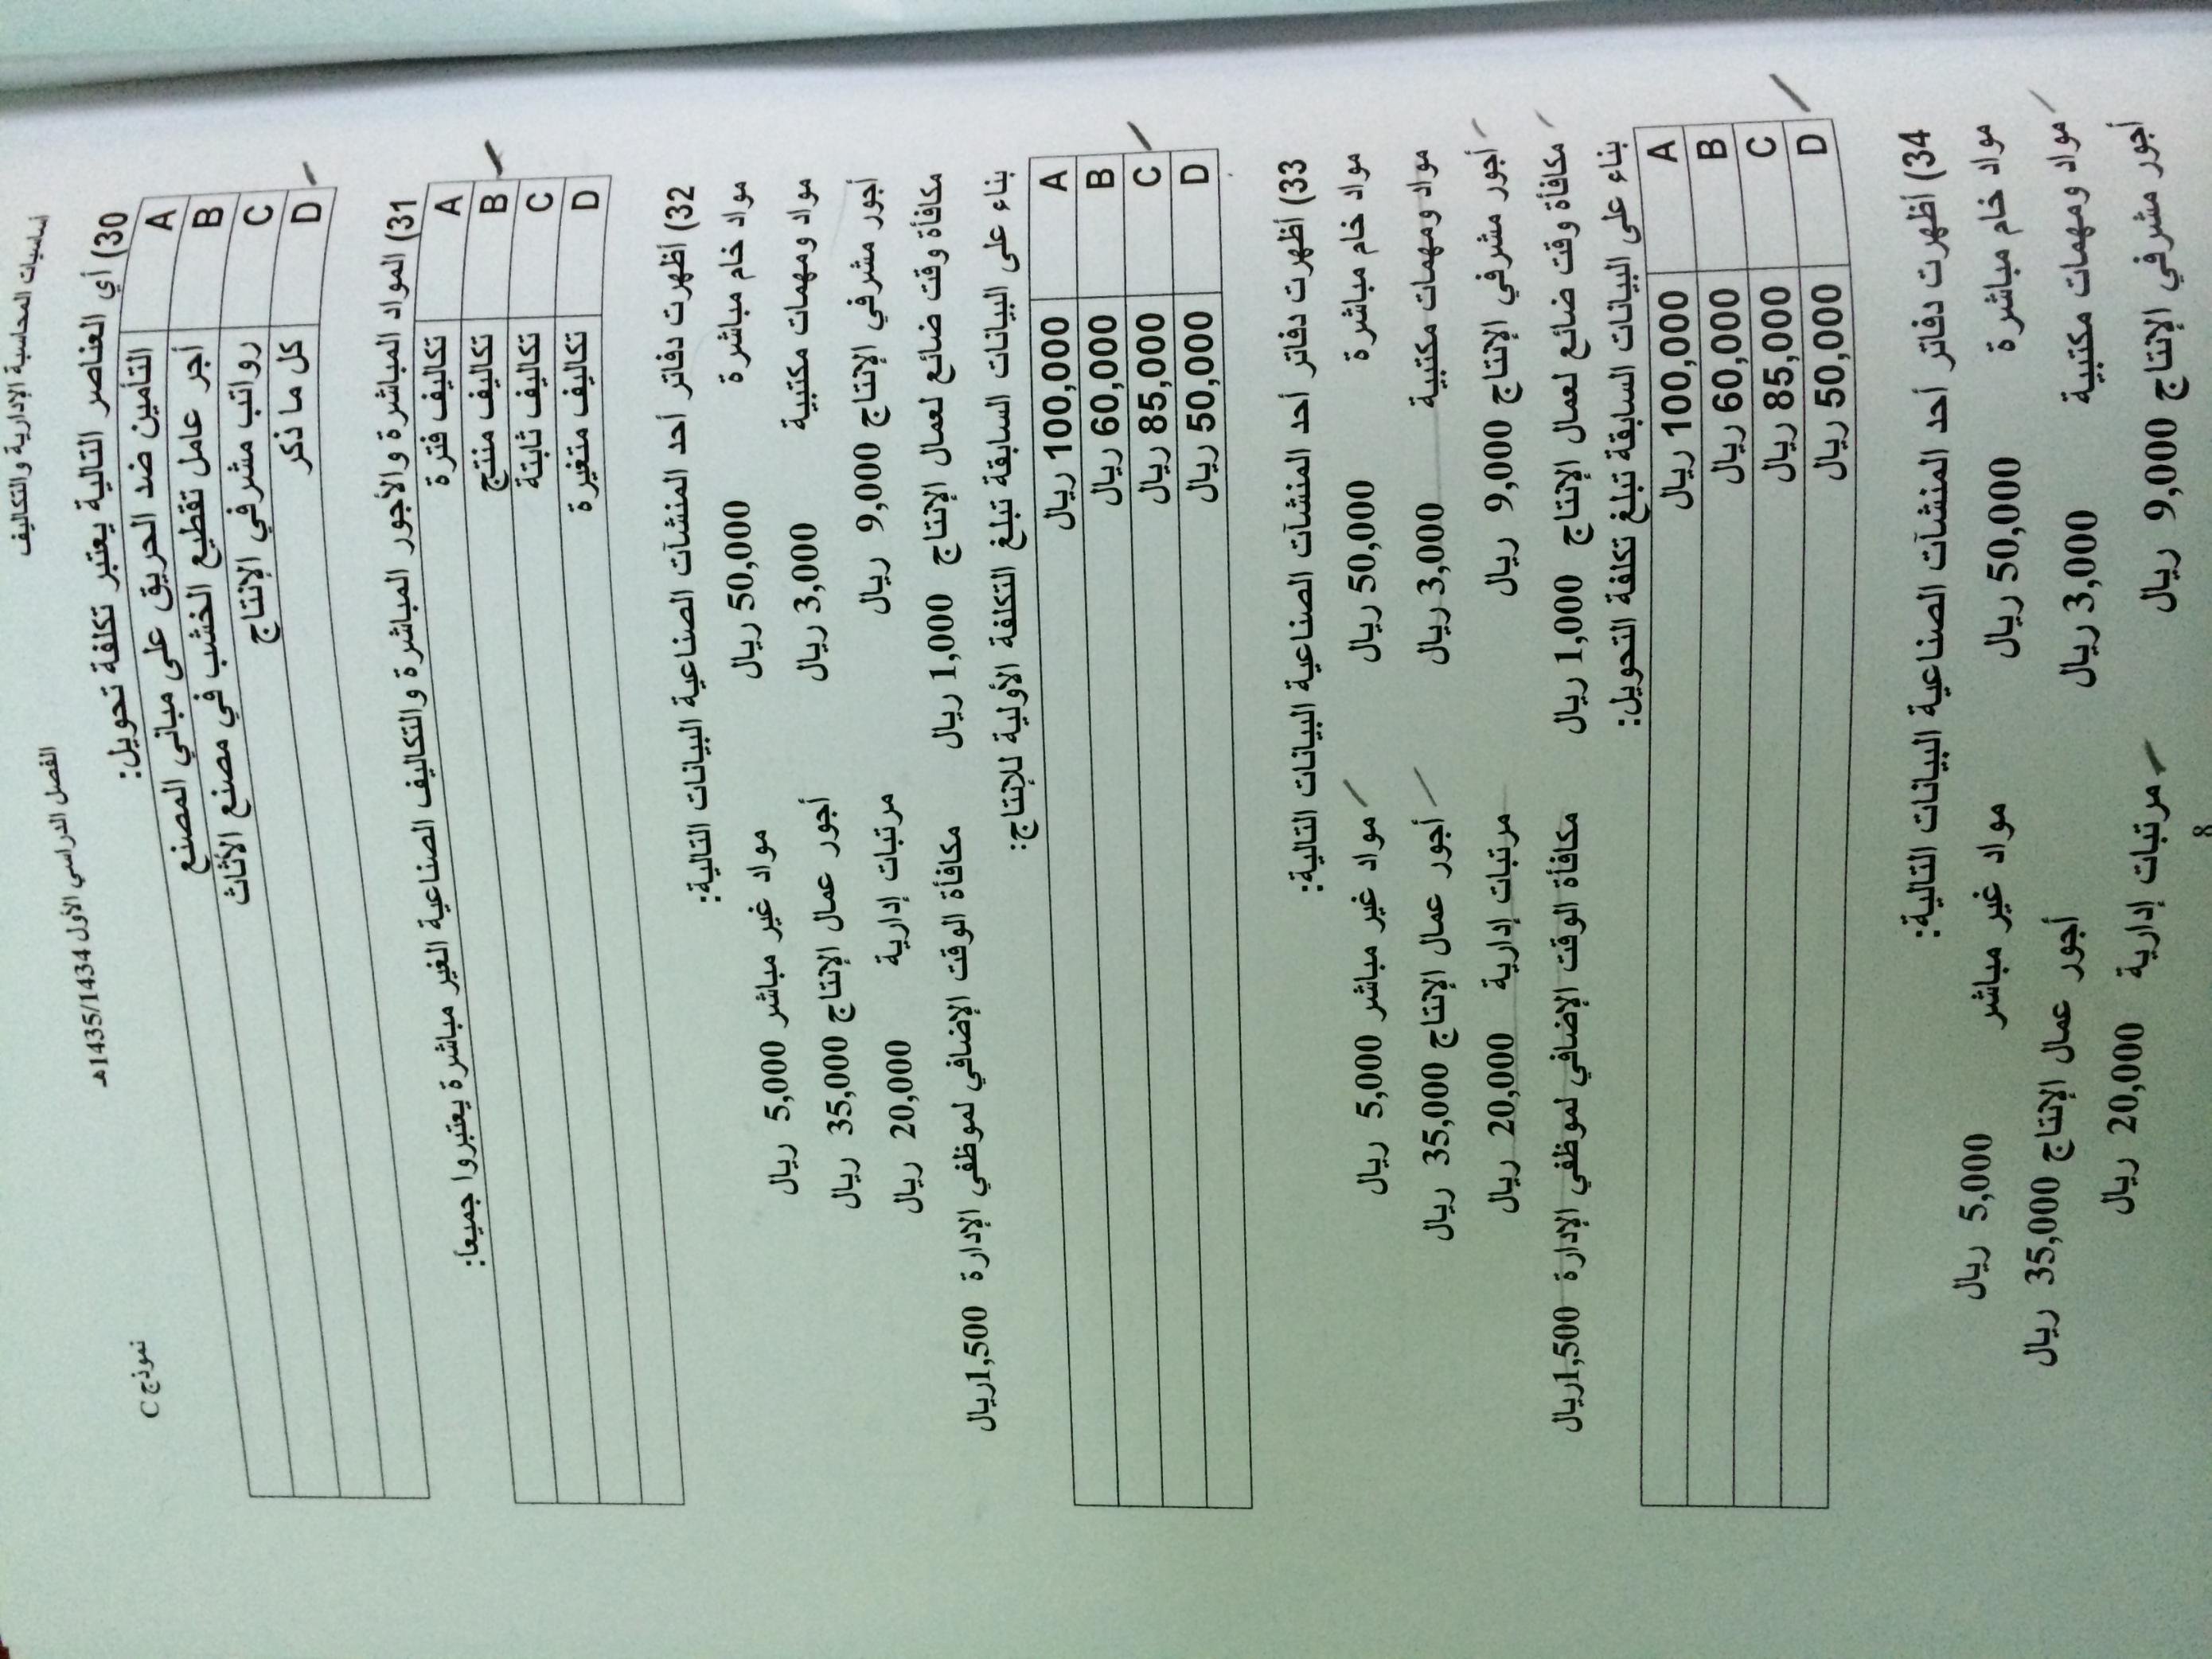 أساسيات المحاسبة الإدارية والتكاليف
الفصل الدراسي الأول 1435/1434هـ
نموذج C
30) أي العناصر التالية يعتبر تكلفة تحويل:
A التأمين ضد الحريق على مباني المصنع
B أجر عامل تقطيع الخشب في مصنع الأثاث
C رواتب مشرفي الإنتاج
D كل ما ذكر
31) المواد المباشرة والأجور المباشرة والتكاليف الصناعية الغير مباشرة يعتبروا جميعاً:
A تكاليف فترة
B تكاليف منتج
C تكاليف ثابتة
D تكاليف متغيرة
32) أظهرت دفاتر أحد المنشآت الصناعية البيانات التالية:
مواد خام مباشرة 50,000 ريال مواد غير مباشر 5,000 ريال
مواد ومهمات مكتبية 3,000 ريال أجور عمال الإنتاج 35,000 ريال
أجور مشرفي الإنتاج 9,000 ريال مرتبات إدارية 20,000 ريال
مكافأة وقت ضائع لعمال الإنتاج 1,000 ريال مكافأة الوقت الإضافي لموظفي الإدارة 1,500ريال
بناء على البيانات السابقة تبلغ التكلفة الأولية للإنتاج:
A 100,000 ريال
B 60,000 ريال
C 85,000 ريال
D 50,000 ريال
33) أظهرت دفاتر أحد المنشآت الصناعية البيانات التالية:
مواد خام مباشرة 50,000 ريال مواد غير مباشر 5,000 ريال
مواد ومهمات مكتبية 3,000 ريال أجور عمال الإنتاج 35,000 ريال
أجور مشرفي الإنتاج 9,000 ريال مرتبات إدارية 20,000 ريال
مكافأة وقت ضائع لعمال الإنتاج 1,000 ريال مكافأة الوقت الإضافي لموظفي الإدارة 1,500ريال
بناء على البيانات السابقة تبلغ تكلفة التحويل:
A 100,000 ريال
B 60,000 ريال
C 85,000 ريال
D 50,000 ريال
34) أظهرت دفاتر أحد المنشآت الصناعية البيانات التالية:
مواد خام مباشرة 50,000 ريال مواد غير مباشر 5,000 ريال
مواد ومهمات مكتبية 3,000 ريال أجور عمال الإنتاج 35,000 ريال
أجور مشرفي الإنتاج 9,000 ريال مرتبات إدارية 20,000 ريال
8